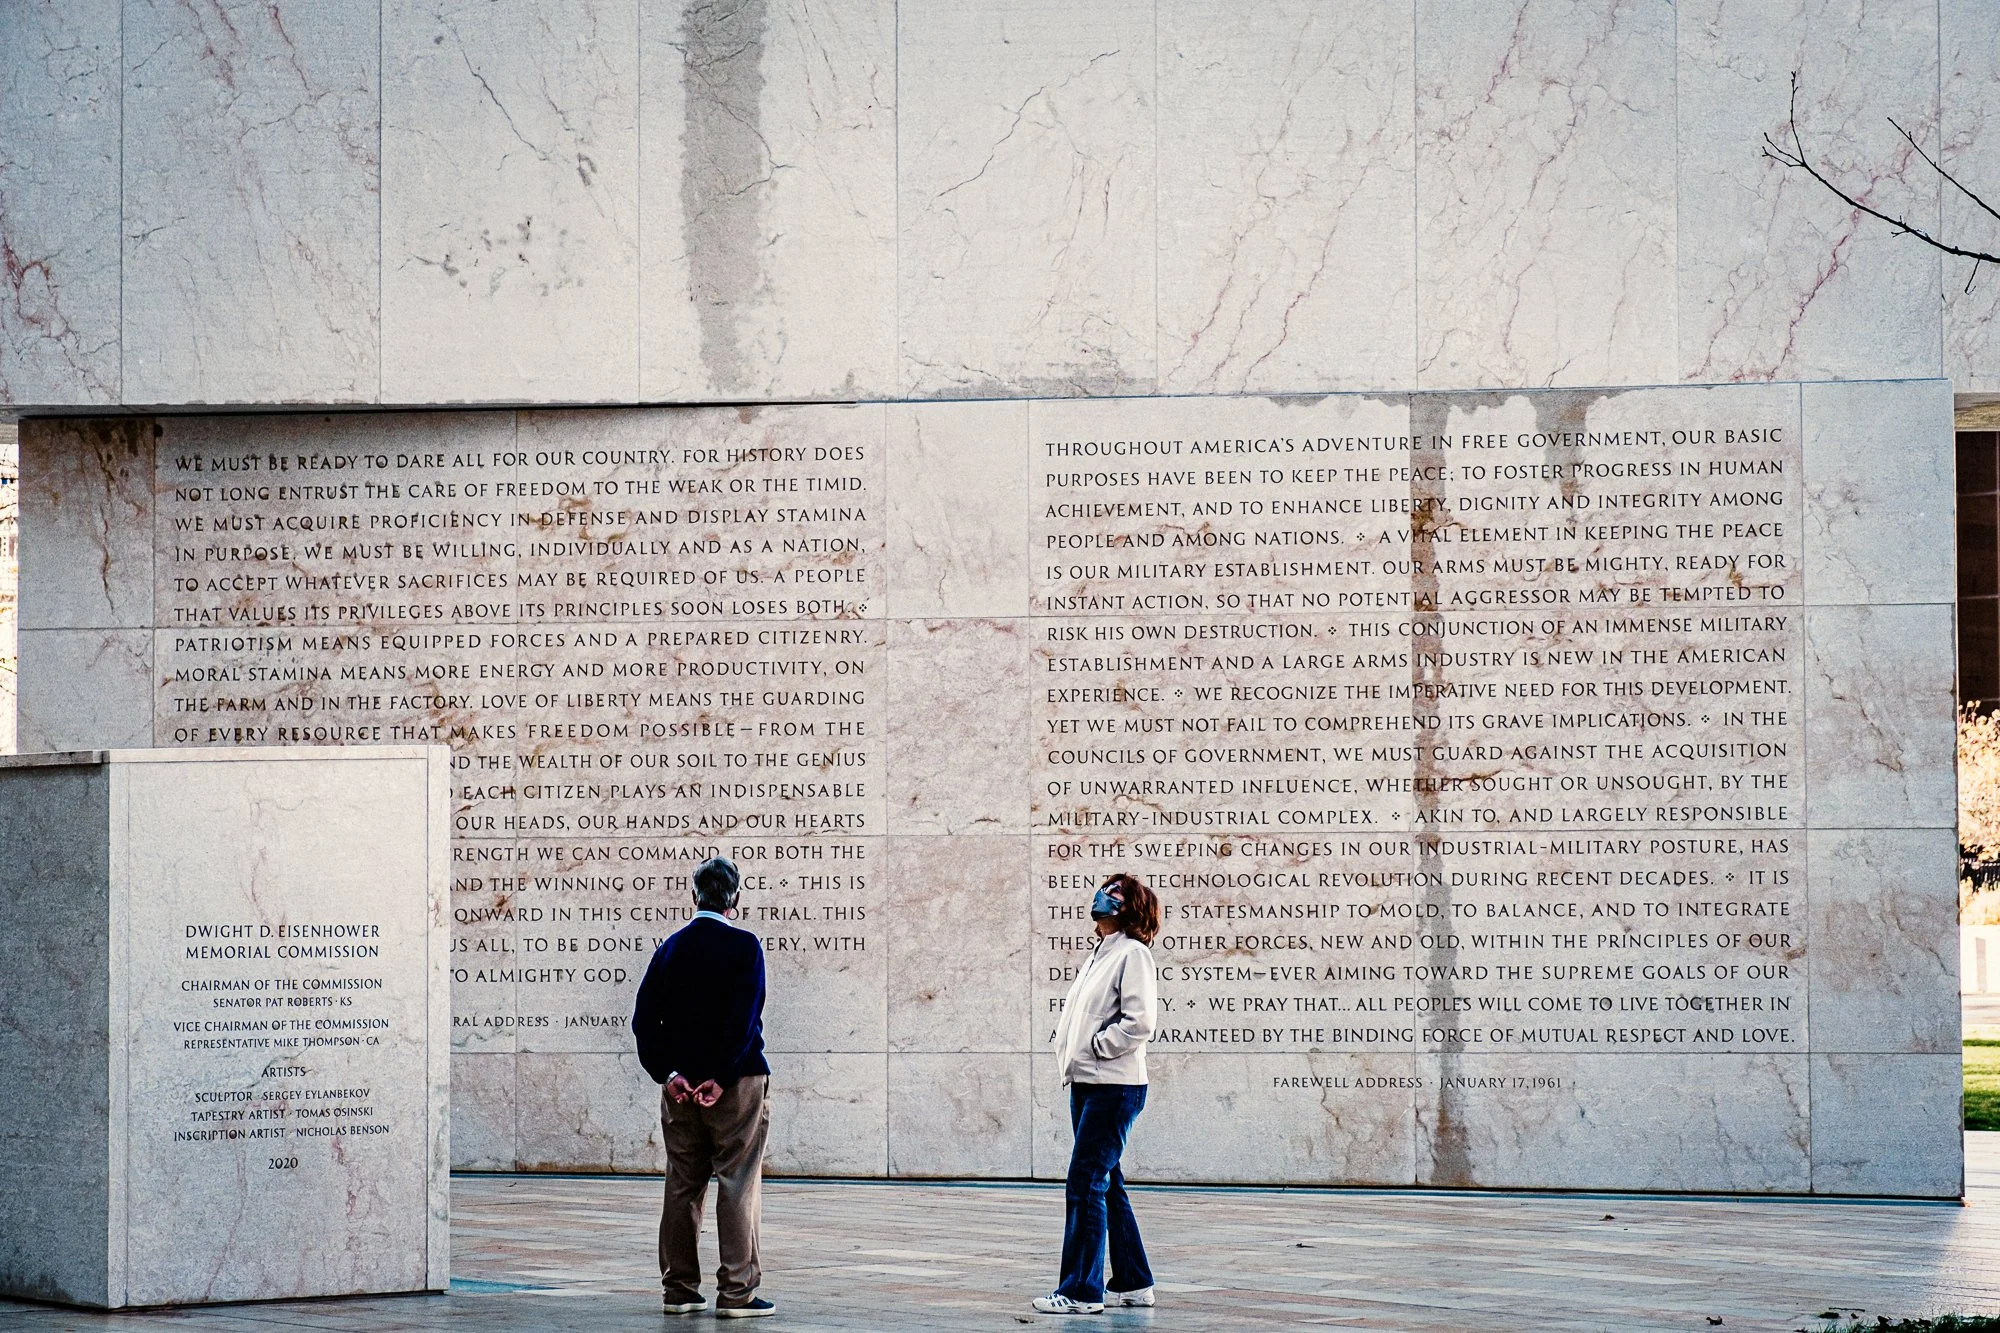 WE MUST BE READY TO DARE ALL FOR OUR COUNTRY. FOR HISTORY DOES
NOT LONG ENTRUST THE CARE OF FREEDOM TO THE WEAK OR THE TIMID.
WE MUST ACQUIRE PROFICIENCY IN DEFENSE AND DISPLAY STAMINA
IN PURPOSE. WE MUST BE WILLING, INDIVIDUALLY AND AS A NATION,
TO ACCEPT WHATEVER SACRIFICES MAY BE REQUIRED OF US. A PEOPLE
THAT VALUES ITS PRIVILEGES ABOVE ITS PRINCIPLES SOON LOSES BOTH.
PATRIOTISM MEANS EQUIPPED FORCES AND A PREPARED CITIZENRY.
MORAL STAMINA MEANS MORE ENERGY AND MORE PRODUCTIVITY, ON
THE FARM AND IN THE FACTORY. LOVE OF LIBERTY MEANS THE GUARDING
OF EVERY RESOURCE THAT MAKES FREEDOM POSSIBLE—FROM THE
THE WEALTH OF OUR SOIL TO THE GENIUS
EACH CITIZEN PLAYS AN INDISPENSABLE
OUR HEADS, OUR HANDS AND OUR HEARTS
WE CAN COMMAND, FOR BOTH THE
AND THE WINNING OF THIS IS
ONWARD IN THIS OF TRIAL. THIS
US ALL, TO BE DONE WITH
TO ALMIGHTY GOD.
ADDRESS · JANUARY
THROUGHOUT AMERICA'S ADVENTURE IN FREE GOVERNMENT, OUR BASIC
PURPOSES HAVE BEEN TO KEEP THE PEACE; TO FOSTER PROGRESS IN HUMAN
ACHIEVEMENT, AND TO ENHANCE LIBERTY, DIGNITY AND INTEGRITY AMONG
PEOPLE AND AMONG NATIONS. A VITAL ELEMENT IN KEEPING THE PEACE
IS OUR MILITARY ESTABLISHMENT. OUR ARMS MUST BE MIGHTY, READY FOR
INSTANT ACTION, SO THAT NO POTENTIAL AGGRESSOR MAY BE TEMPTED TO
RISK HIS OWN DESTRUCTION. THIS CONJUNCTION OF AN IMMENSE MILITARY
ESTABLISHMENT AND A LARGE ARMS INDUSTRY IS NEW IN THE AMERICAN
EXPERIENCE. WE RECOGNIZE THE IMPERATIVE NEED FOR THIS DEVELOPMENT.
YET WE MUST NOT FAIL TO COMPREHEND ITS GRAVE IMPLICATIONS. IN THE
COUNCILS OF GOVERNMENT, WE MUST GUARD AGAINST THE ACQUISITION
OF UNWARRANTED INFLUENCE, WHETHER SOUGHT OR UNSOUGHT, BY THE
MILITARY-INDUSTRIAL COMPLEX. AKIN TO, AND LARGELY RESPONSIBLE
FOR THE SWEEPING CHANGES IN OUR INDUSTRIAL-MILITARY POSTURE, HAS
BEEN TECHNOLOGICAL REVOLUTION DURING RECENT DECADES. IT IS
THE STATESMANSHIP TO MOLD, TO BALANCE, AND TO INTEGRATE
OTHER FORCES, NEW AND OLD, WITHIN THE PRINCIPLES OF OUR
SYSTEM—EVER AIMING TOWARD THE SUPREME GOALS OF OUR
WE PRAY THAT... ALL PEOPLES WILL COME TO LIVE TOGETHER IN
BY THE BINDING FORCE OF MUTUAL RESPECT AND LOVE.
FAREWELL ADDRESS · JANUARY 17, 1961
DWIGHT D. EISENHOWER
MEMORIAL COMMISSION
CHAIRMAN OF THE COMMISSION
SENATOR PAT ROBERTS · KS
VICE CHAIRMAN OF THE COMMISSION
REPRESENTATIVE MIKE THOMPSON · CA
ARTISTS
SCULPTOR · SERGEY EYLANBEKOV
TAPESTRY ARTIST · TOMAS OSINSKI
INSCRIPTION ARTIST · NICHOLAS BENSON
2020